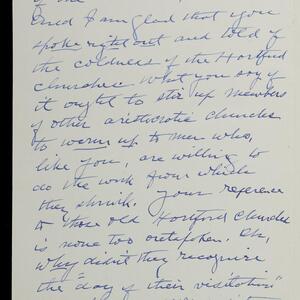 of the
and I am glad that you
spoke right out and told of
the coldness of the Hartford
churches. What you say of
it ought to stir up members
of other aristocratic churches
to warm up to men who,
like you, are willing to
do the work from which
they shrink. Your reference
to those old Hartford churches
is none too outspoken. Oh,
why didn't they recognize
the "day of their visitation"